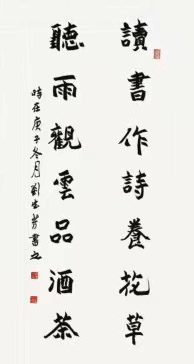 讀書作詩養花草
聽雨觀雲品酒茶
時在庚子冬月劉